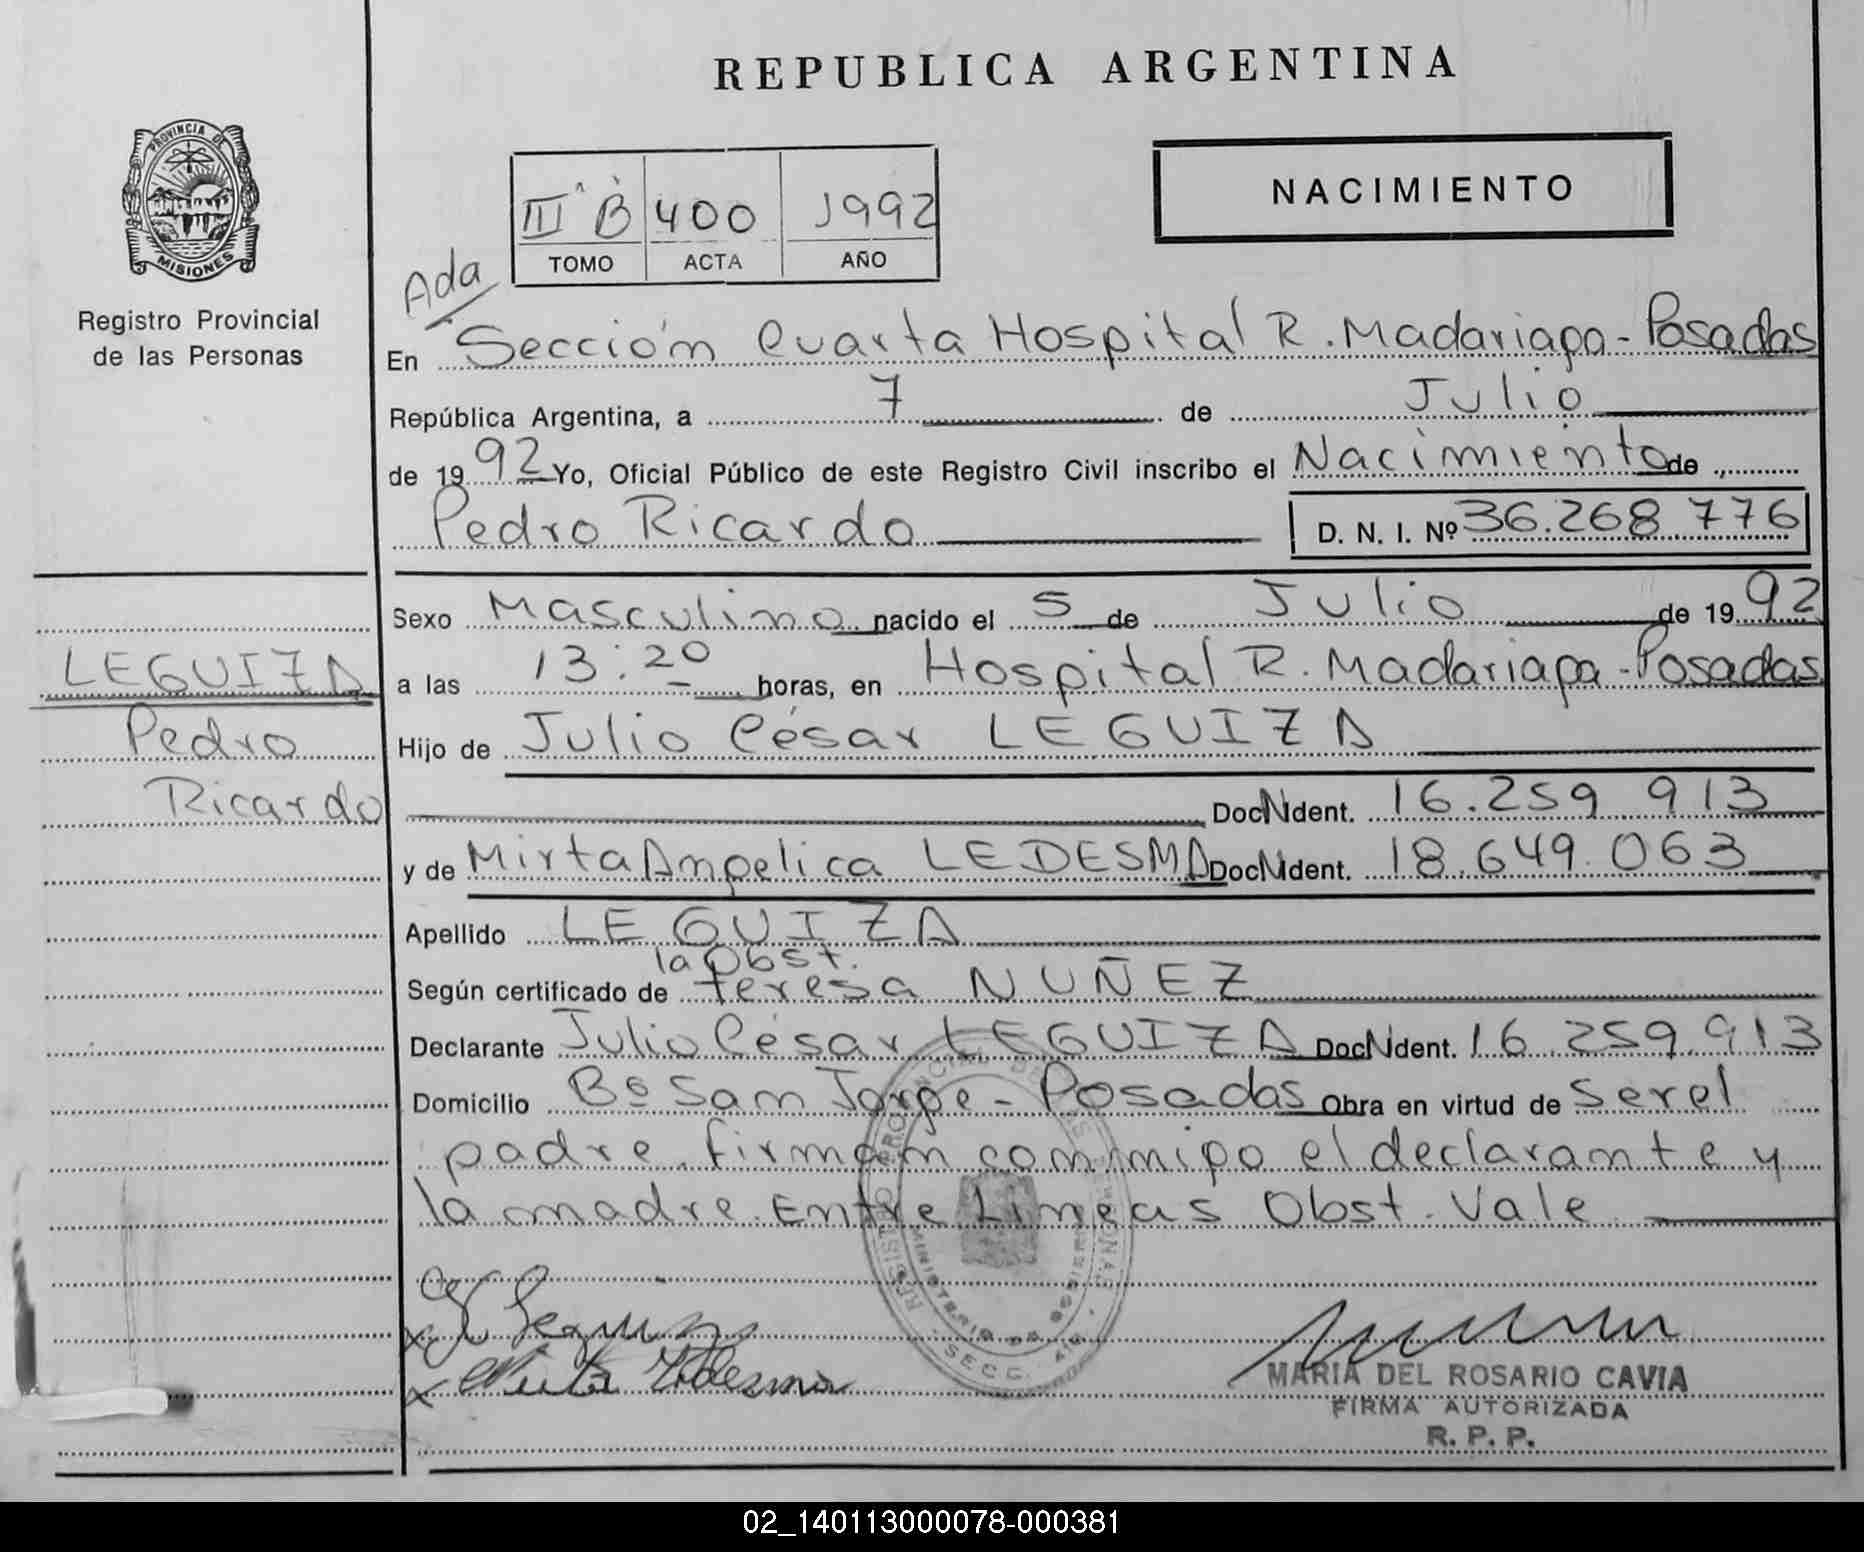 REPUBLICA ARGENTINA
PROVINCIA DE
MISIONES
Registro Provincial
de las Personas
III B 400 1992
TOMO ACTA AÑO
NACIMIENTO
Ada
En Sección Cuarta Hospital R. Madariaga - Posadas
República Argentina, a 7 de Julio
de 1992 Yo, Oficial Público de este Registro Civil inscribo el Nacimiento de
Pedro Ricardo D. N. I. Nº 36.268.776
Sexo Masculino nacido el 5 de Julio de 1992
LEGUIZA
Pedro
Ricardo
a las 13:20 horas, en Hospital R. Madariaga - Posadas
Hijo de Julio César LEGUIZA
Doc N Ident. 16.259.913
y de Mirta Angelica LEDESMA Doc N Ident. 18.649.063
Apellido LEGUIZA
la Obst.
Según certificado de Teresa NUÑEZ
Declarante Julio César LEGUIZA Doc N Ident. 16.259.913
Domicilio Bº San Jorge - Posadas Obra en virtud de Ser el
padre. firman conmigo el declarante y
la madre. Entre Lineas Obst. Vale
REGISTRO PROVINCIAL DE LAS PERSONAS
MINISTERIO DE GOBIERNO
SECC. 4ta
Mirta Ledesma
MARIA DEL ROSARIO CAVIA
FIRMA AUTORIZADA
R. P. P.
02_140113000078-000381